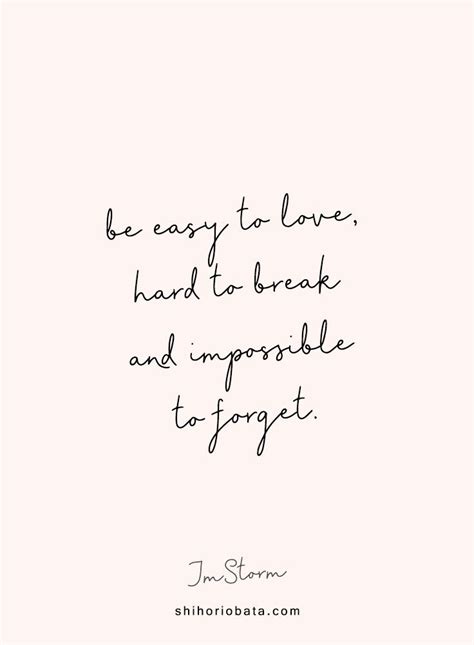 be easy to love,
hard to break
and impossible
to forget.
JmStorm
shihoriobata.com